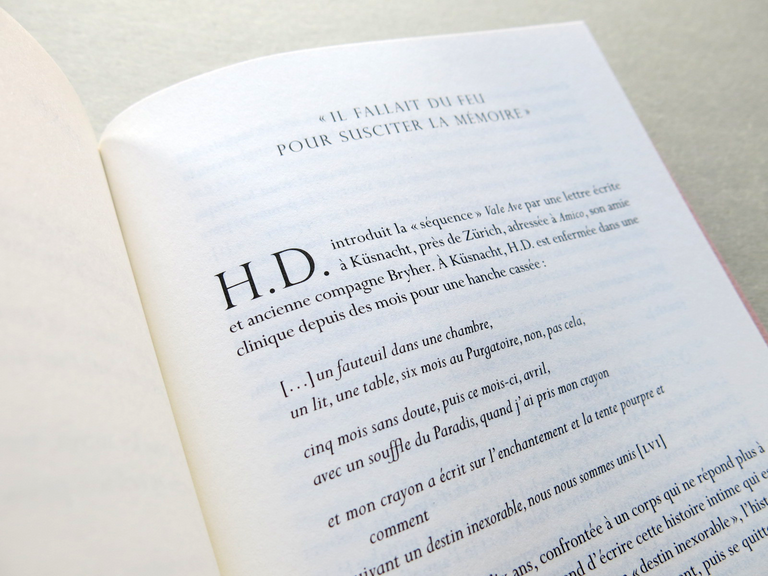 « IL FALLAIT DU FEU
POUR SUSCITER LA MÉMOIRE »
H.D. introduit la « séquence » Vale Ave par une lettre écrite
à Küsnacht, près de Zürich, adressée à Amico, son amie
et ancienne compagne Bryher. À Küsnacht, H.D. est enfermée dans une
clinique depuis des mois pour une hanche cassée :
[…] un fauteuil dans une chambre,
un lit, une table, six mois au Purgatoire, non, pas cela,
cinq mois sans doute, puis ce mois-ci, avril,
avec un souffle du Paradis, quand j'ai pris mon crayon
et mon crayon a écrit sur l'enchantement et la tente pourpre et
comment
suivant un destin inexorable, nous nous sommes unis [LVI]
ans, confrontée à un corps qui ne répond plus à
d'écrire cette histoire intime qui
« destin inexorable »,
puis se